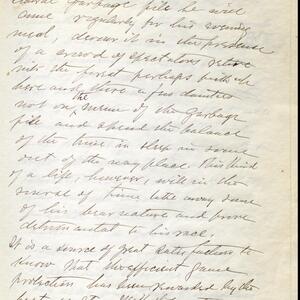 Garbage pile he will
come regularly for his evening
meal, devour it in the presence
of a crowd of spectators retire
into the forest perhaps with
here and there a few dainties
not on the menu of the Garbage
pile and spend the balance
of the time in sleep in some
out of the way place. This kind
of a life, however, will in the
course of time take away some
of his bear nature and prove
detrimental to his race.
It is a source of great satisfaction to
know that the efficient game
protection has been rewarded by the